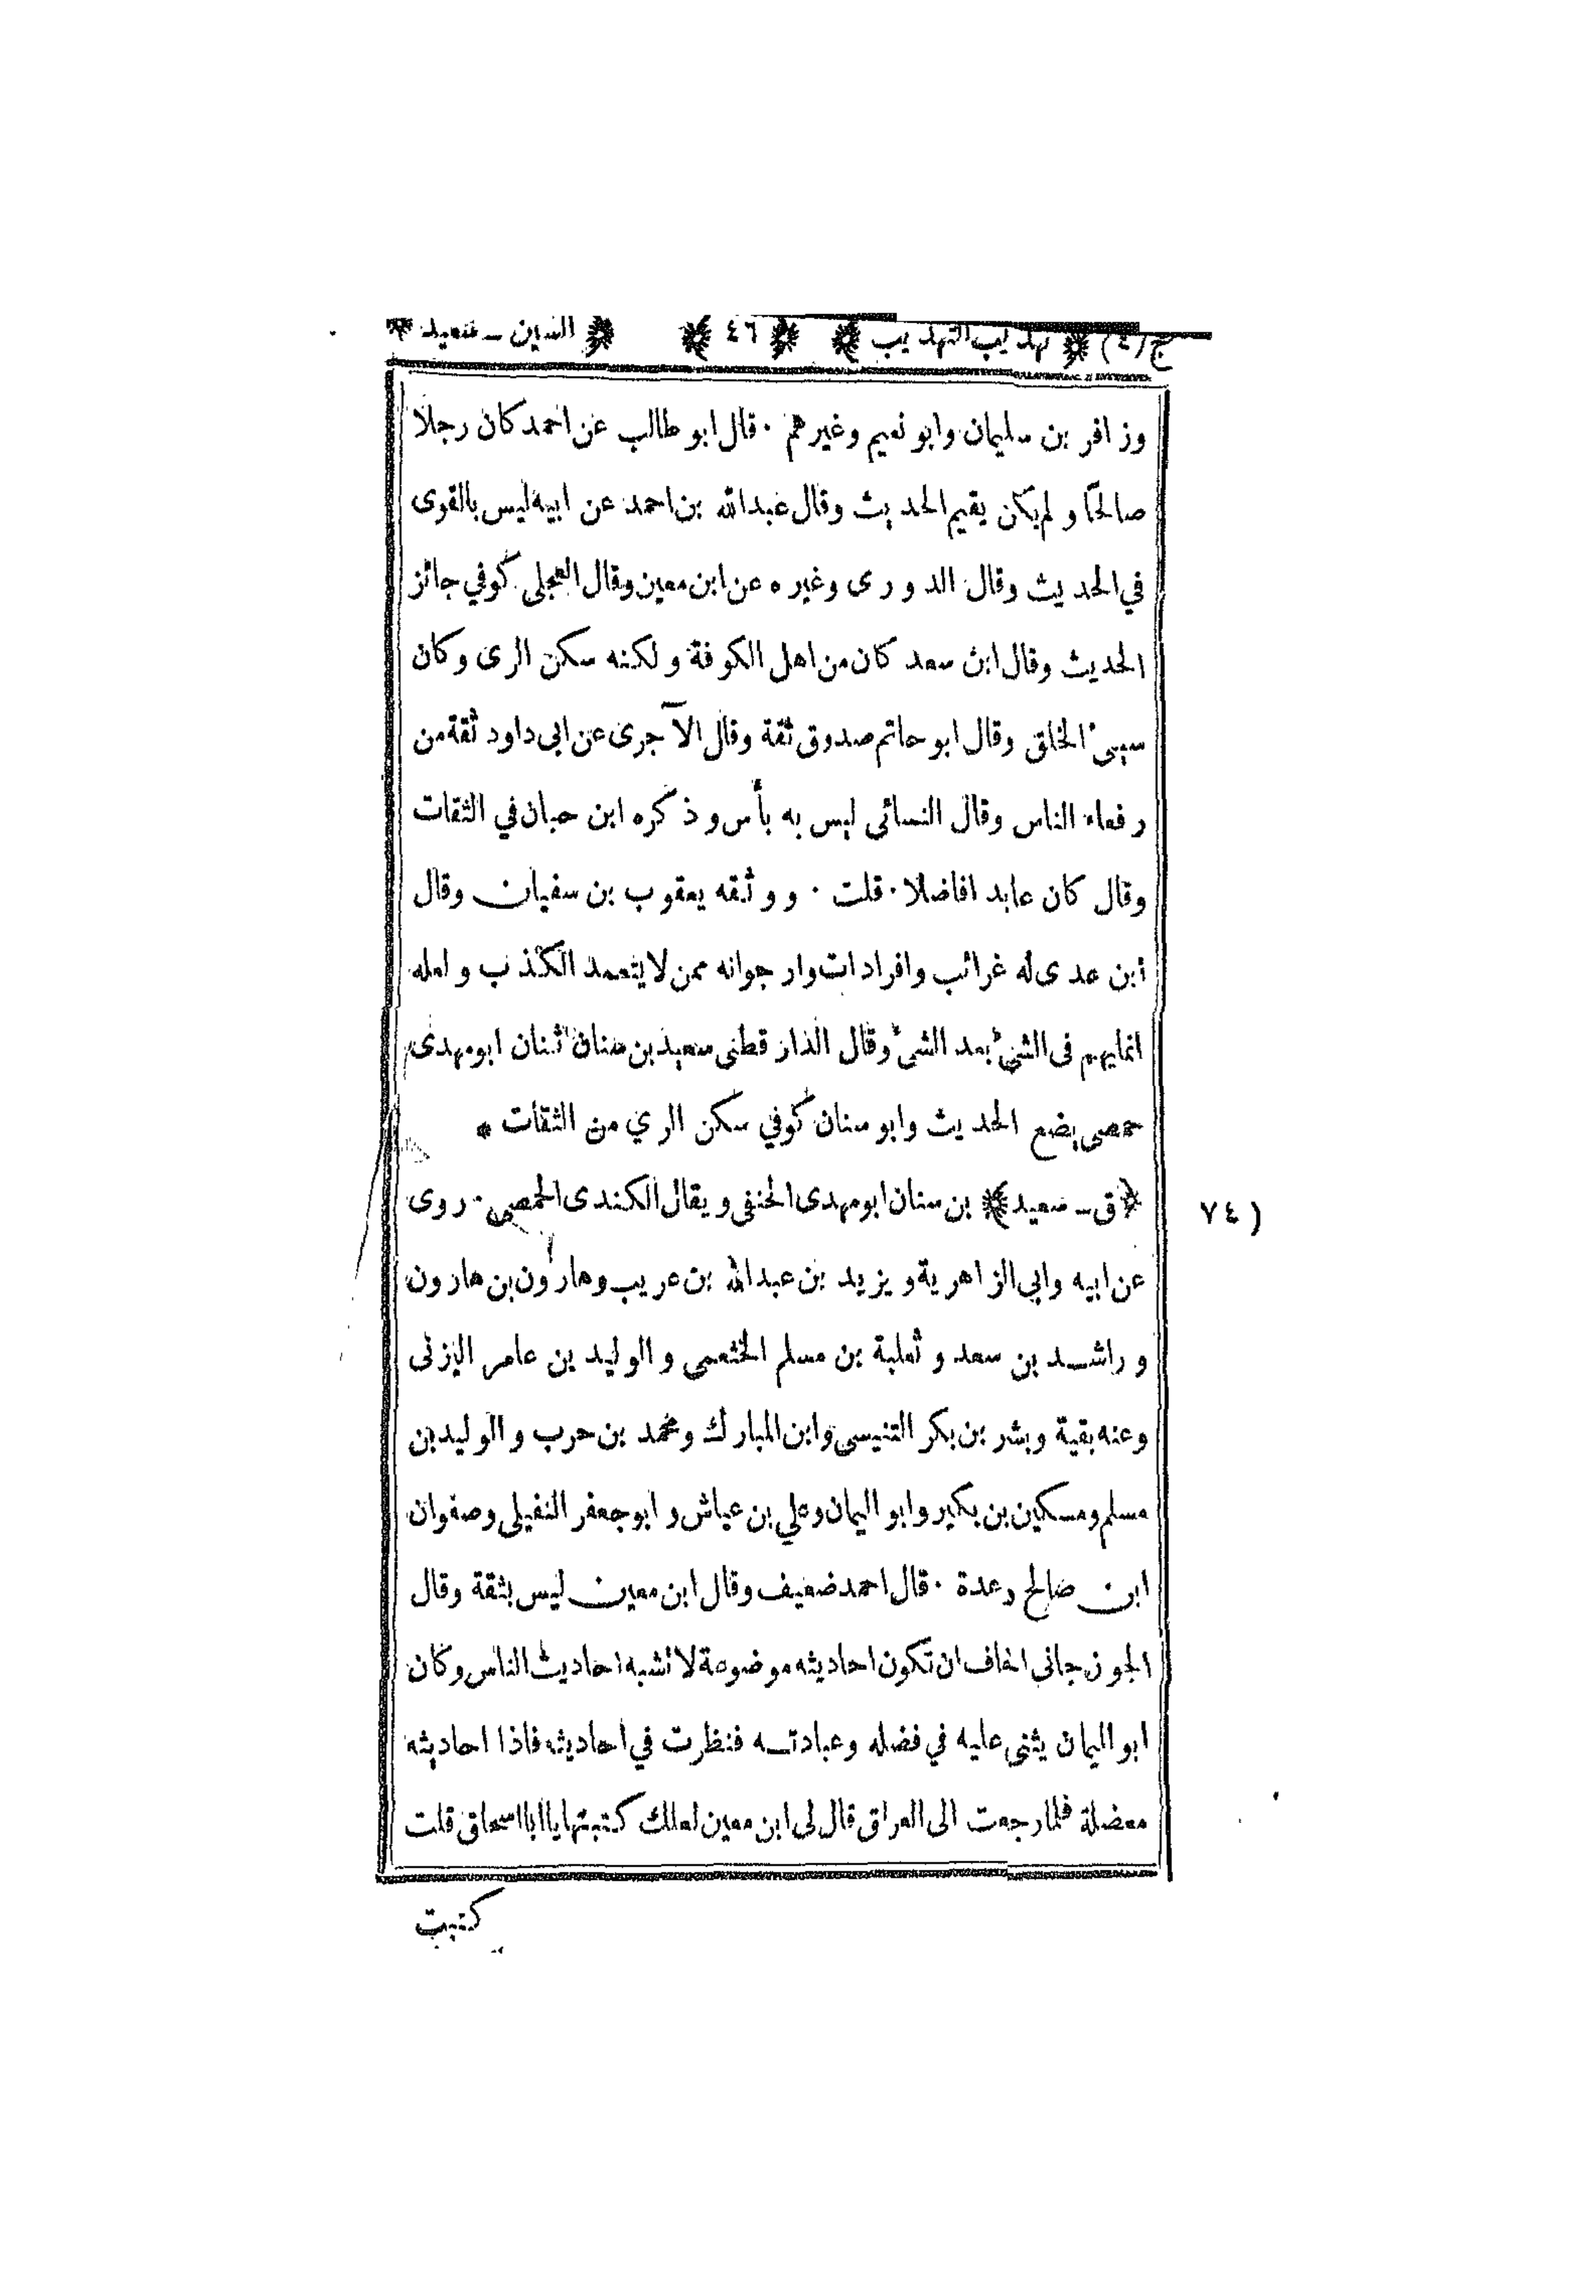 ج(٤) تهذيب التهذيب ٤٦ السين ـ سعيد
وزافر بن سليمان وابو نعيم وغيرهم ٠ قال ابو طالب عن احمد كان رجلا
صالحًا ولم يكن يقيم الحديث وقال عبدالله بن احمد عن ابيه ليس بالقوى
في الحديث وقال الدورى وغيره عن ابن معين وقال العجلى كوفي جائز
الحديث وقال ابن سعد كان من اهل الكوفة ولكنه سكن الرى وكان
سيئ الخلق وقال ابو حاتم صدوق ثقة وقال الآجرى عن ابى داود ثقة من
رفعاء الناس وقال النسائى ليس به بأس وذكره ابن حبان في الثقات
وقال كان عابدا فاضلا ٠ قلت ٠ ووثقه يعقوب بن سفيان وقال
ابن عدى له غرائب وافرادات وارجوانه ممن لا يتعمد الكذب ولعله
انما يهم فى الشئ بعد الشئ وقال الدارقطنى سعيد بن سنان اثنان ابومهدى
حمصى يضع الحديث وابو سنان كوفي سكن الري من الثقات *
﴿ق ـ سعيد﴾ بن سنان ابومهدى الحنفى ويقال الكندى الحمصى ٠ روى
(٧٤
عن ابيه وابي الزاهرية ويزيد بن عبدالله بن عريب وهارون بن هارون
وراشد بن سعد وثعلبة بن مسلم الخثعمى والوليد بن عامر اليزنى
وعنه بقية وبشر بن بكر التنيسى وابن المبارك ومحمد بن حرب والوليد بن
مسلم ومسكين بن بكير وابو اليمان وعلي بن عياش وابو جعفر النفيلى وصفوان
ابن صالح وعدة ٠ قال احمد ضعيف وقال ابن معين ليس بثقة وقال
الجوزجانى اخاف ان تكون احاديثه موضوعة لا تشبه احاديث الناس وكان
ابو اليمان يثنى عليه في فضله وعبادته فنظرت في احاديثه فاذا احاديثه
معضلة فلما رجعت الى العراق قال لى ابن معين لعلك كتبتها يا ابا اسحاق قلت
كتبت